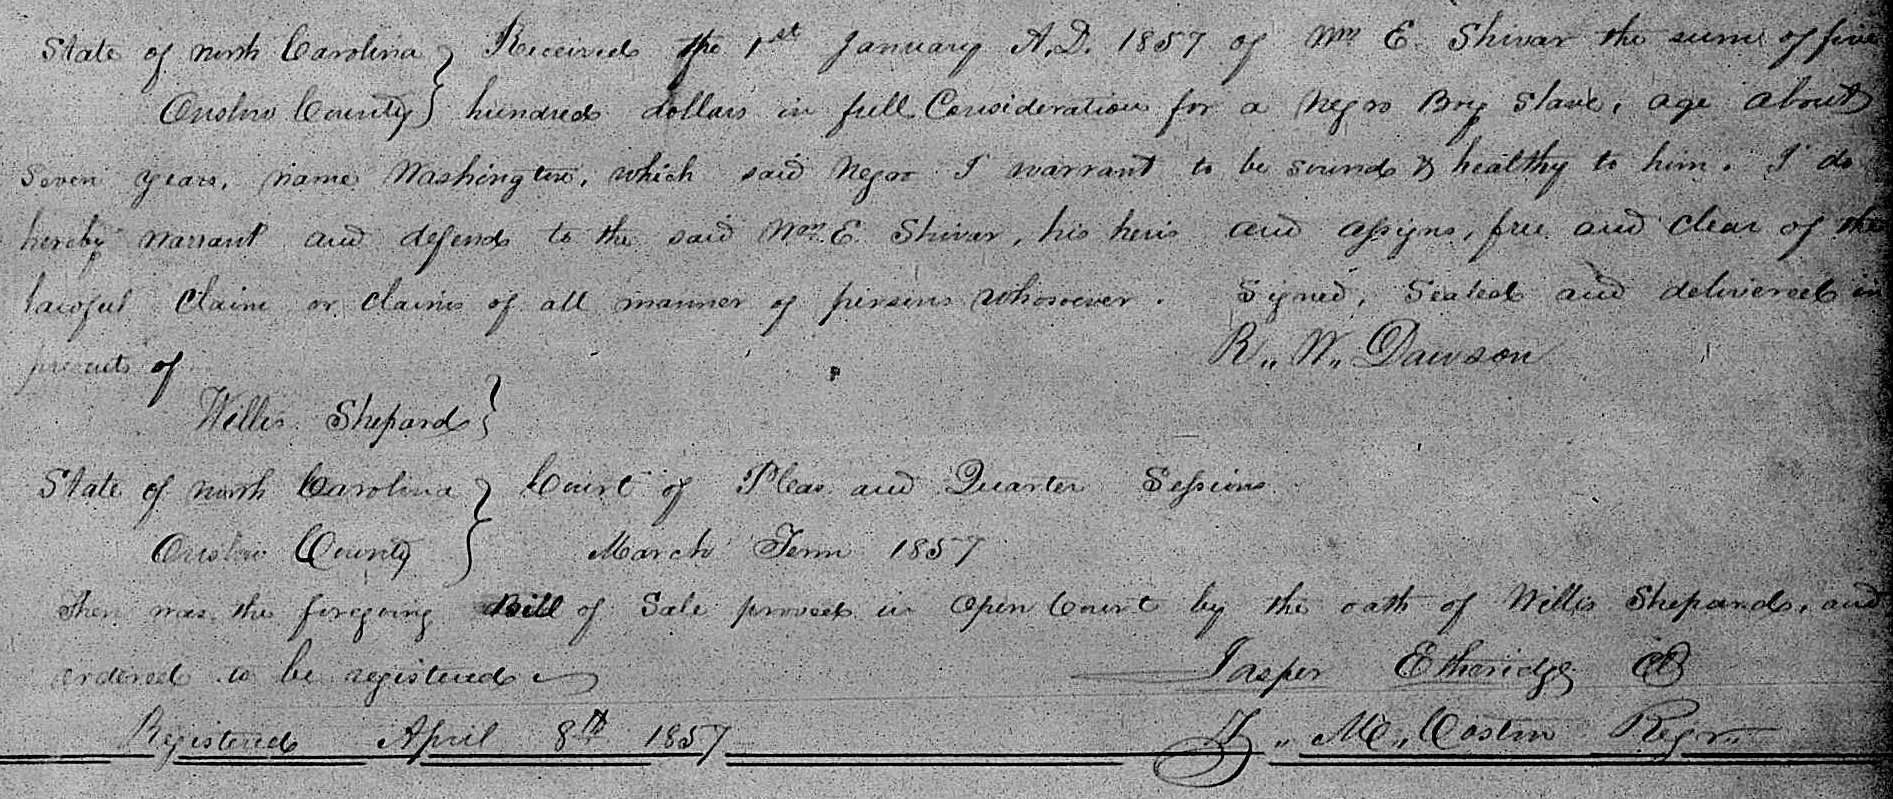 State of north Carolina } Received the 1st January A.D. 1857 of Wm E. Shivar the sum of five
Onslow County } hundred dollars in full Consideration for a Negro Boy Slave, age about
Seven years, name Washington, which said Negro I warrant to be sound & healthy to him. I do
hereby warrant and defend to the said Wm. E. Shivar, his heirs and assigns, free and clear of the
lawful claim or claims of all manner of persons whosoever. Signed, Sealed and delivered in
presents of R. W. Dawson
Willis Shepard }
State of north Carolina } Court of Pleas and Quarter Sessions
Onslow County } March Term 1857
Then was the foregoing Bill of Sale proved in open Court by the oath of Willis Shepard, and
ordered to be registered
Jasper Etheridge
Registered April 8th 1857 M. Costin Regr.